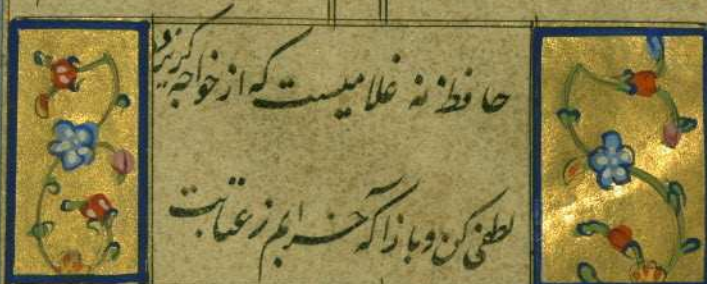 حافظ نه غلامیست که از خواجه گریزد
لطفی کن و بازآ که خرابم ز عتابت